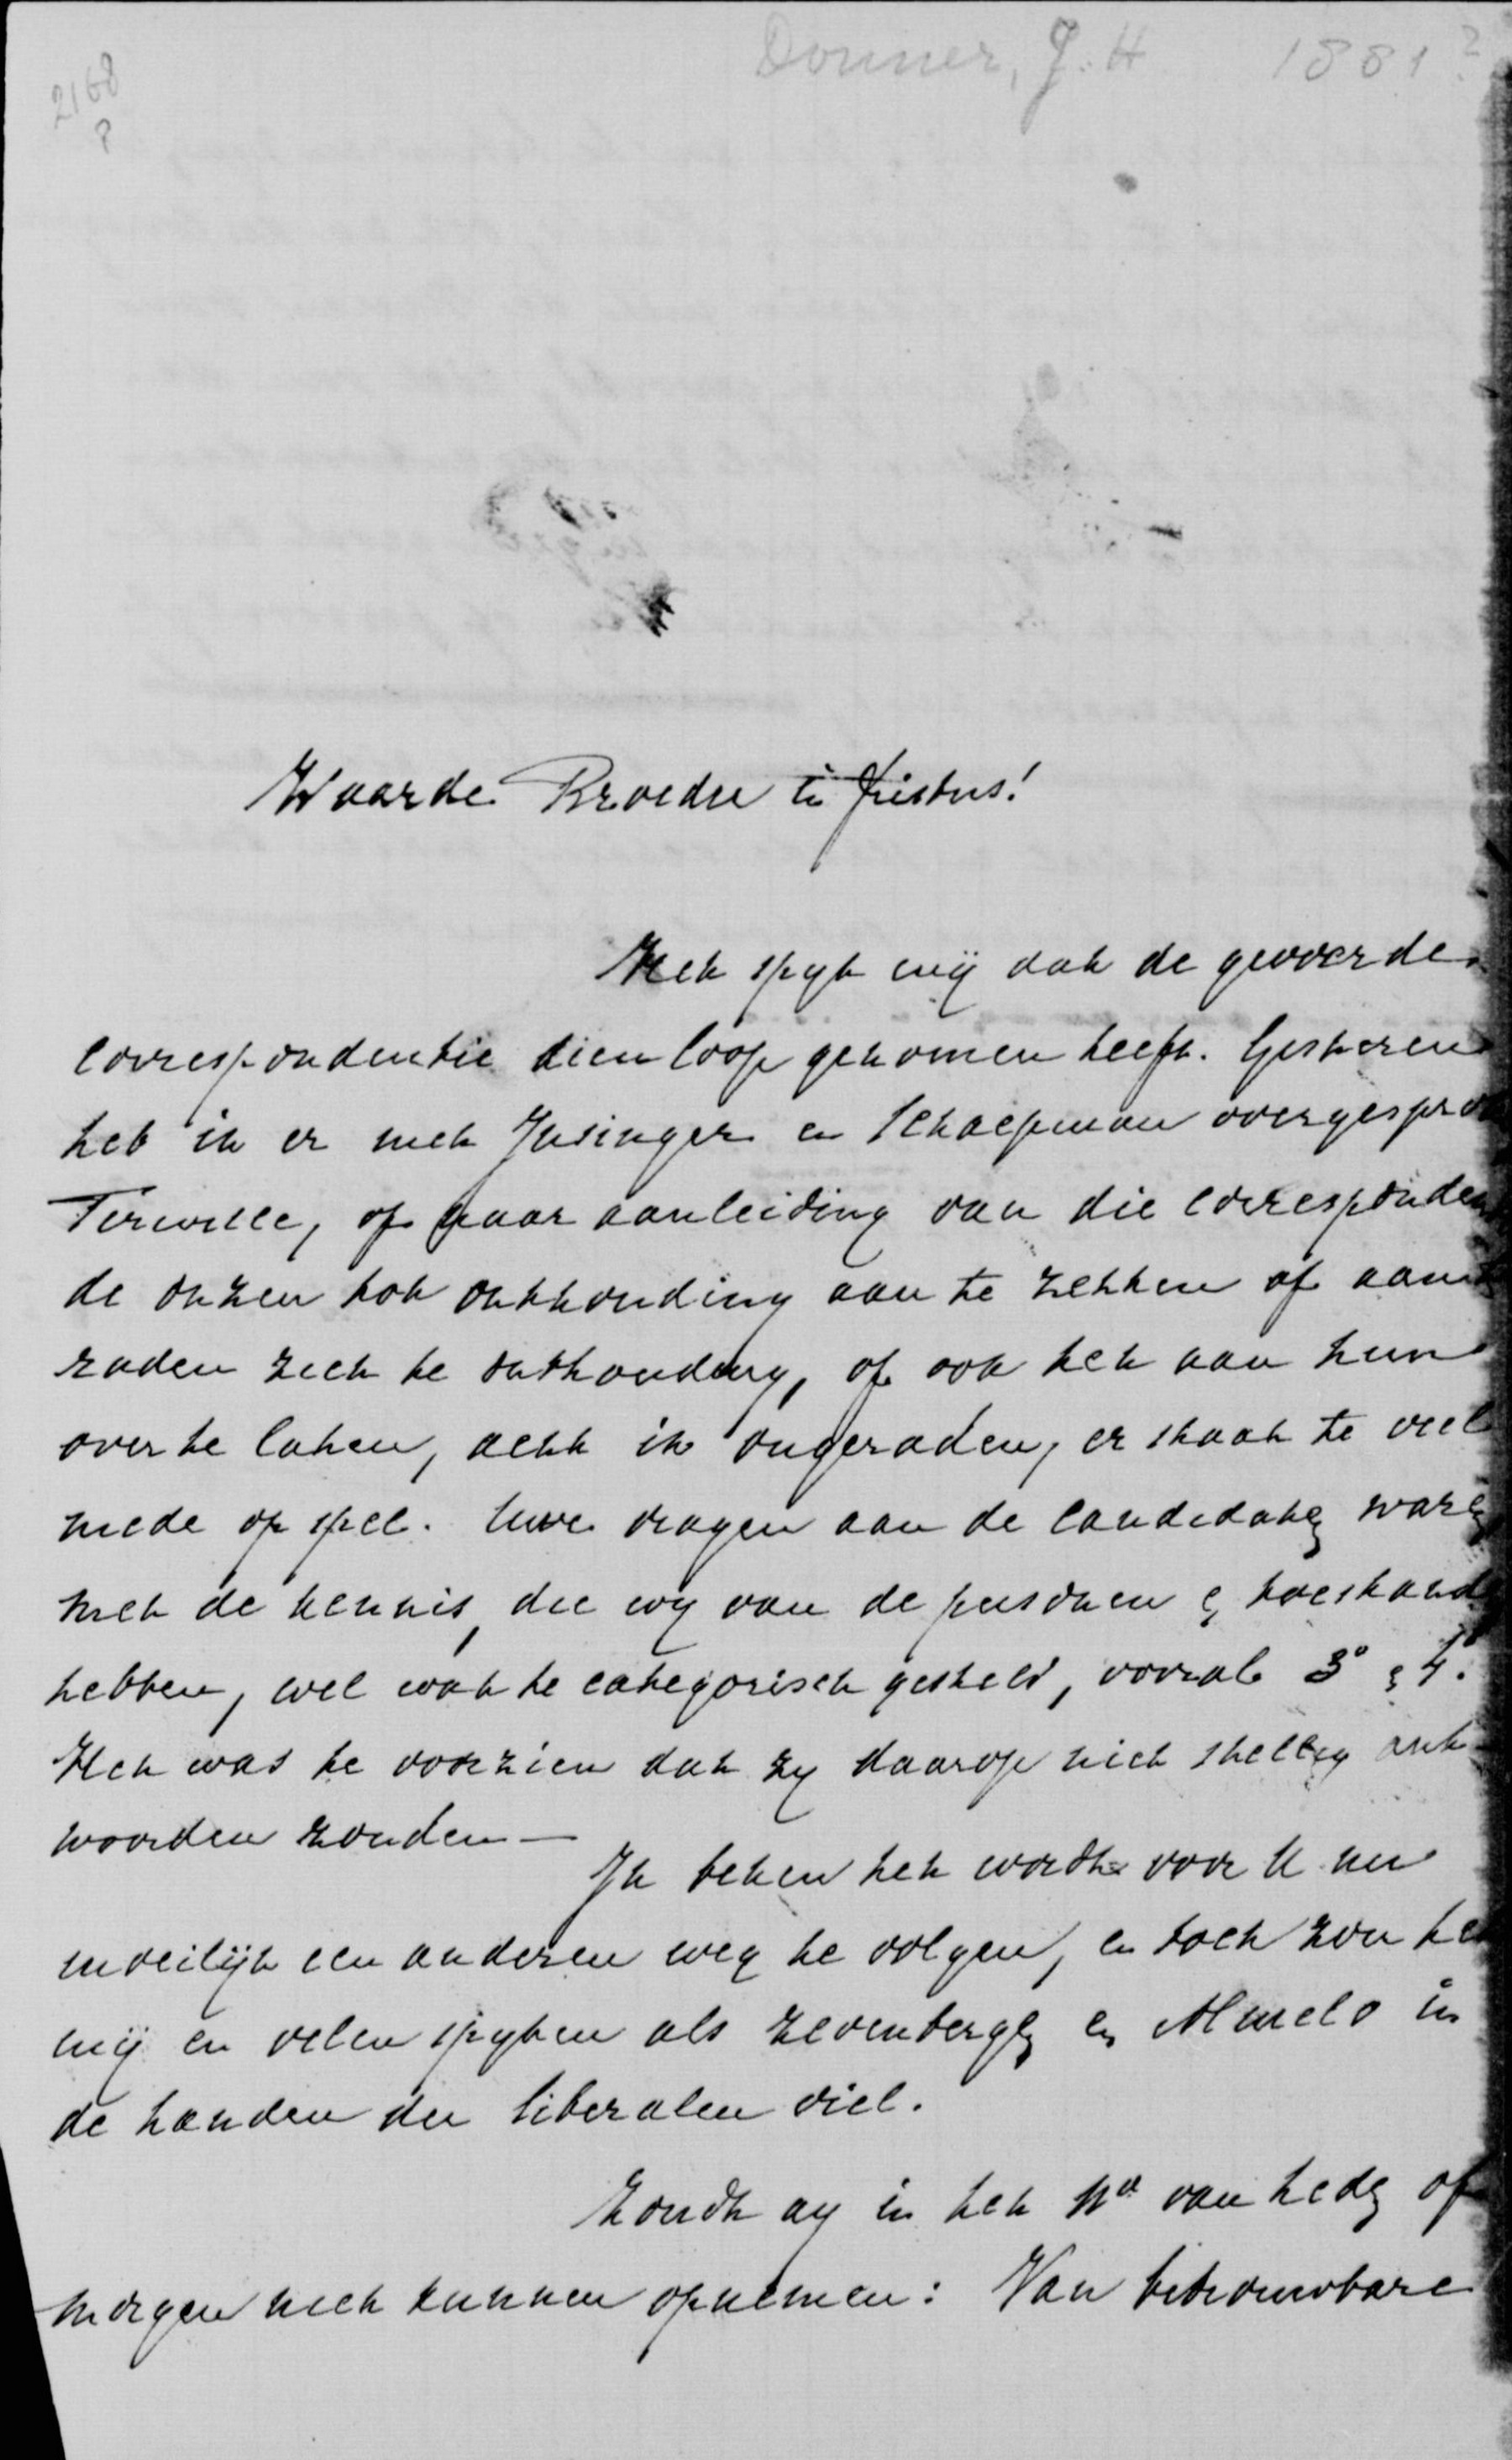 Donner, J. H 1881?
2168
?
Waarde Broeder in Xristus!
Het spyt mij dat de gevoerde
correspondentie dien loop genomen heeft. Gisteren
heb ik er met Insinger en Schaepman over gespro
Terwille, of naar aanleiding van die corresponden
de onzen tot onthouding aan te zetten of aan
raden zich te onthouding, of ook het aan hun
over te laten, acht ik ongeraden, er staat te veel
mede op spel. Uwe vragen aan de candidaten waren
met de kennis, die wy van de personen en toestand
hebben, wel wat te categorisch gesteld, vooral 3° en 4°.
Het was te voorzien dat zy daarop niet stellig ant-
woorden zouden —
Ik beken het wordt voor U nu
moeilijk een anderen weg te volgen, en toch zou het
mij en velen spyten als Zevenbergen en Almelo in
de handen der liberalen viel.
Zoudt gy in het No van heden of
morgen niet kunnen opnemen: Van betrouwbare